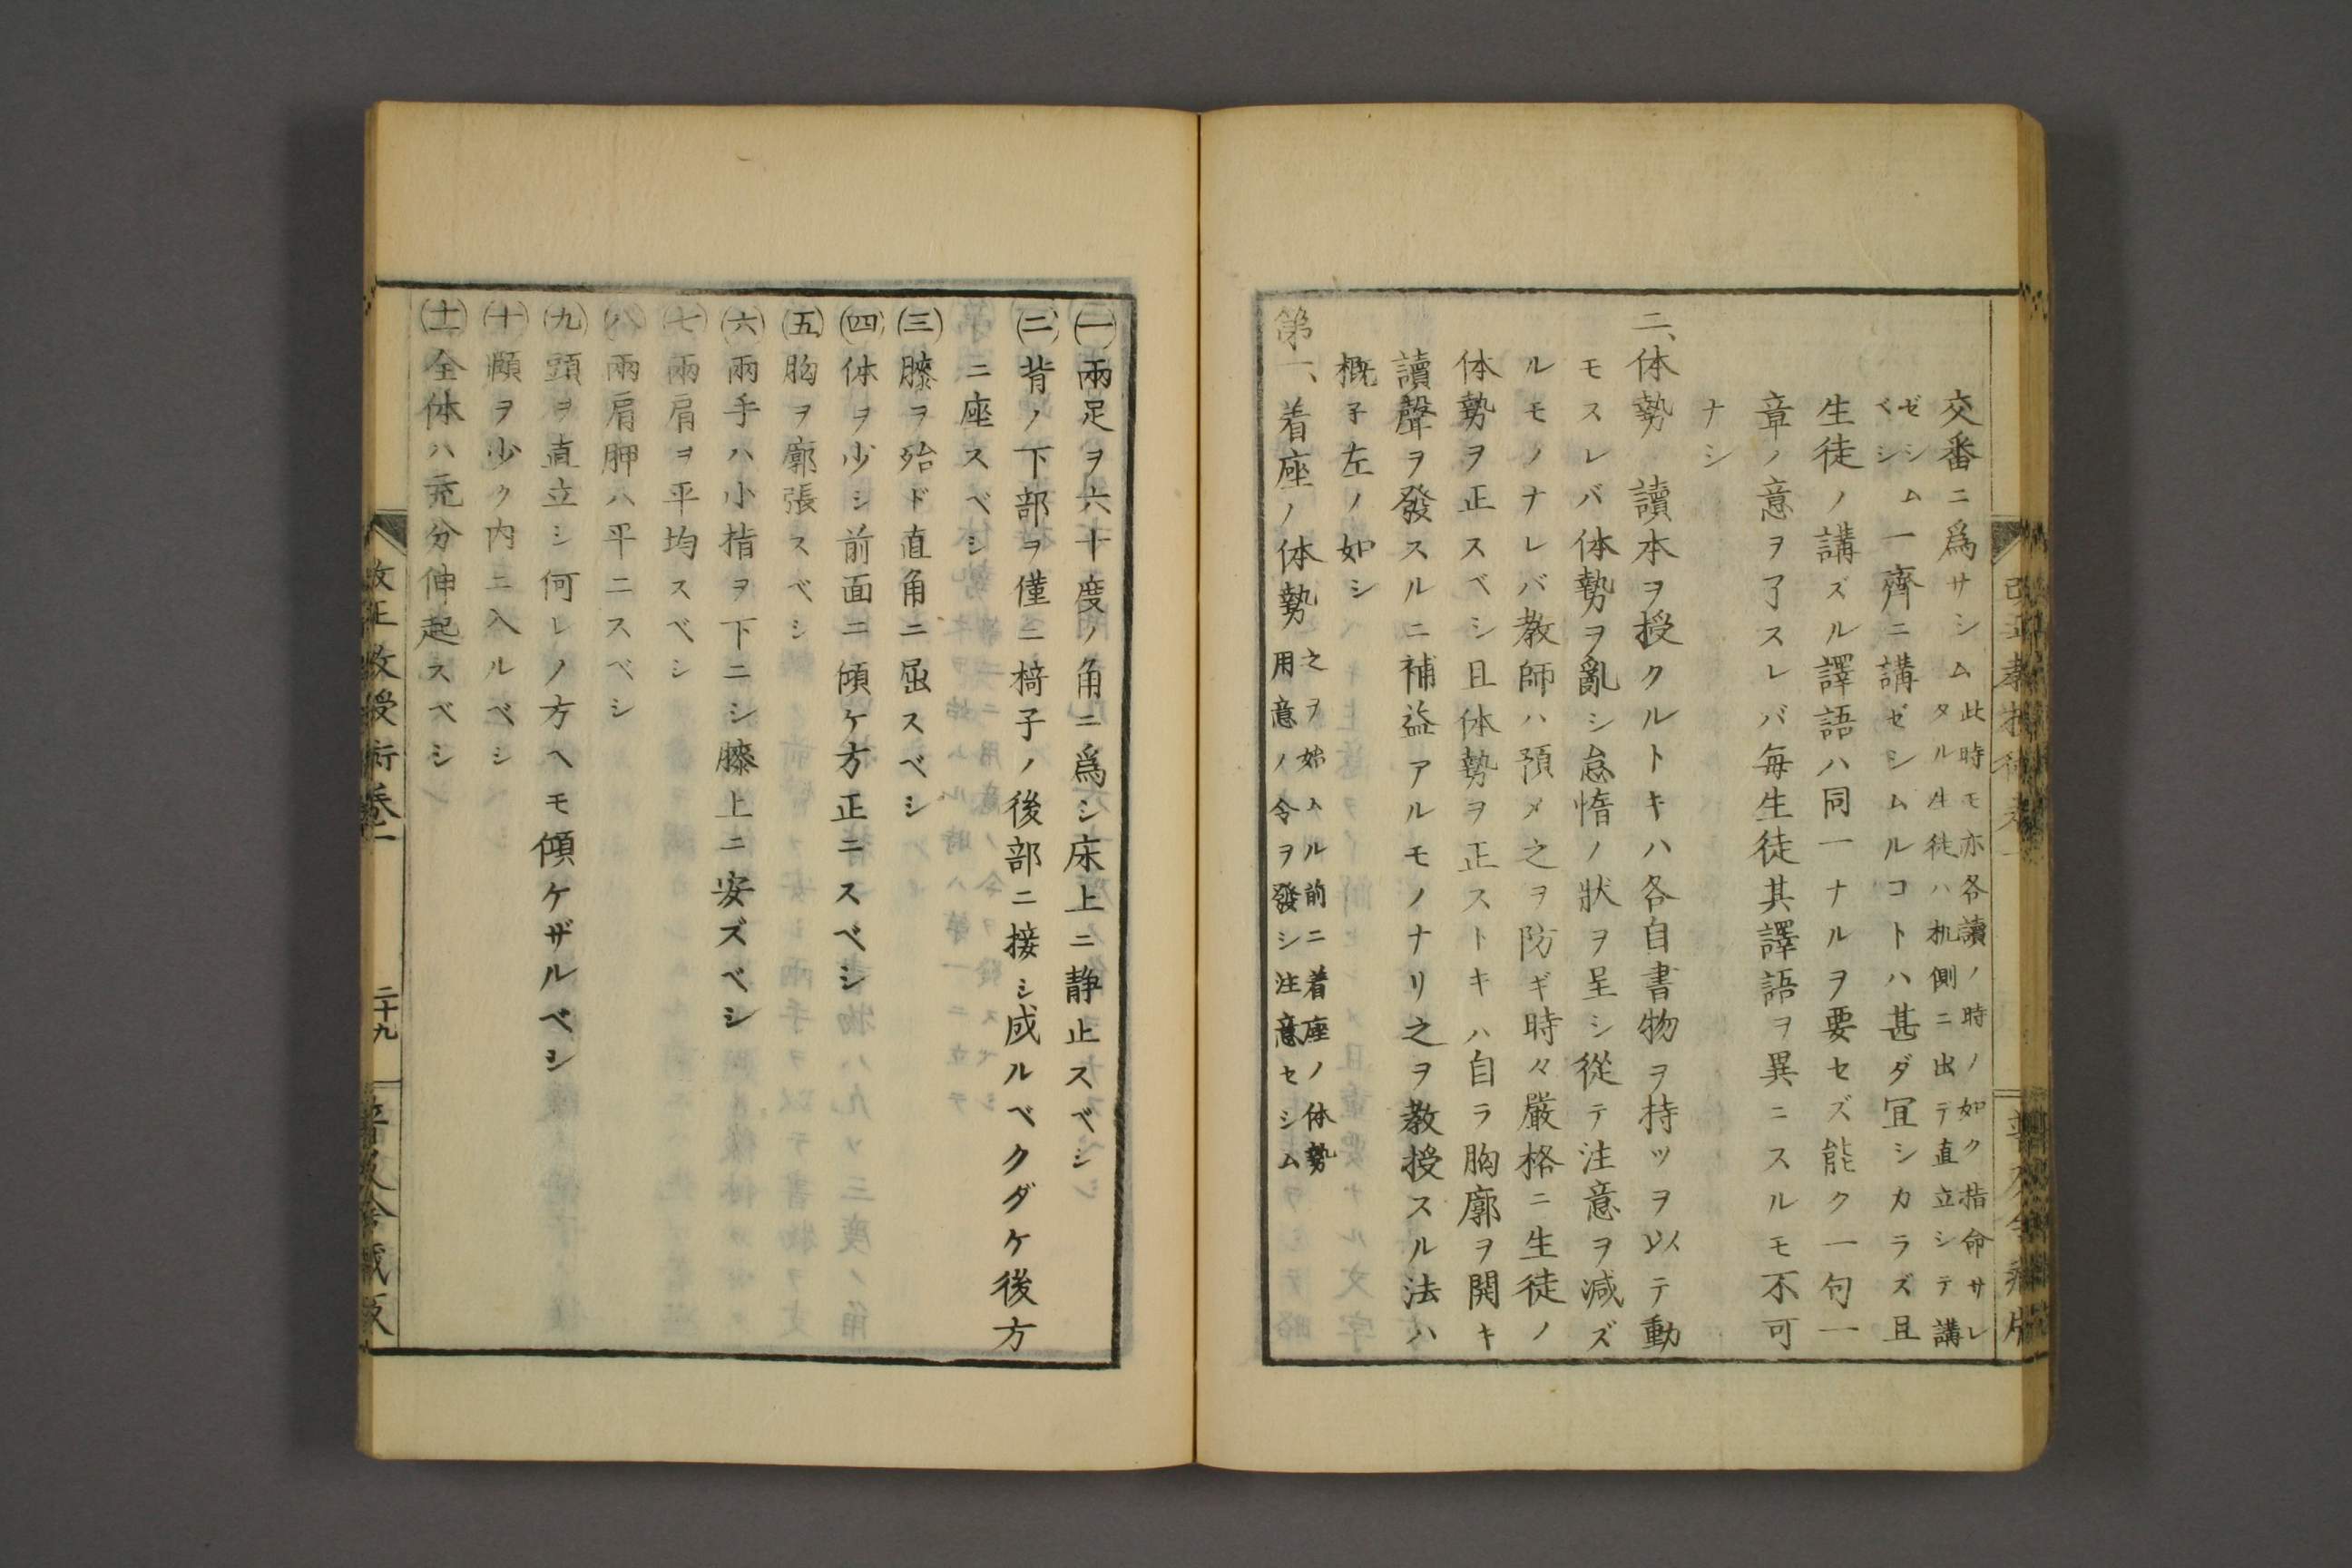 交番ニ爲サシム此時モ亦各讀ノ時ノ如ク指命サレ
タル生徒ハ机側ニ出テ直立シテ講
ゼシム一齊ニ講ゼシムルコトハ甚ダ冝シカラズ且
ベシ
生徒ノ講ズル譯語ハ同一ナルヲ要セズ能ク一句一
章ノ意ヲ了スレバ毎生徒其譯語ヲ異ニスルモ不可
ナシ
二、体勢 讀本ヲ授クルトキハ各自書物ヲ持ツヲ以テ動
モスレバ体勢ヲ亂シ怠惰ノ狀ヲ呈シ從テ注意ヲ減ズ
ルモノナレバ教師ハ預メ之ヲ防ギ時々嚴格ニ生徒ノ
体勢ヲ正スベシ且体勢ヲ正ストキハ自ラ胸廓ヲ開キ
讀聲ヲ發スルニ補益アルモノナリ之ヲ教授スル法ハ
概子左ノ如シ
第一、着座ノ体勢 之ヲ始ムル前ニ着座ノ体勢
用意ノ令ヲ發シ注意セシム
㈠兩足ヲ六十度ノ角ニ爲シ床上ニ静止スベシ
㈡背ノ下部ヲ僅ニ椅子ノ後部ニ接シ成ルベクダケ後方
ニ座スベシ
㈢膝ヲ殆ド直角ニ屈スベシ
㈣体ヲ少シ前面ニ傾ケ方正ニスベシ
㈤胸ヲ廓張スベシ
㈥兩手ハ小指ヲ下ニシ膝上ニ安ズベシ
㈦兩肩ヲ平均スベシ
㈧兩肩胛ハ平ニスベシ
㈨頭ヲ直立シ何レノ方ヘモ傾ケザルベシ
㈩頤ヲ少ク内ニ入ルベシ
(十一)全体ハ充分伸起スベシ
改正教授術卷一
二十九
普及舎藏版